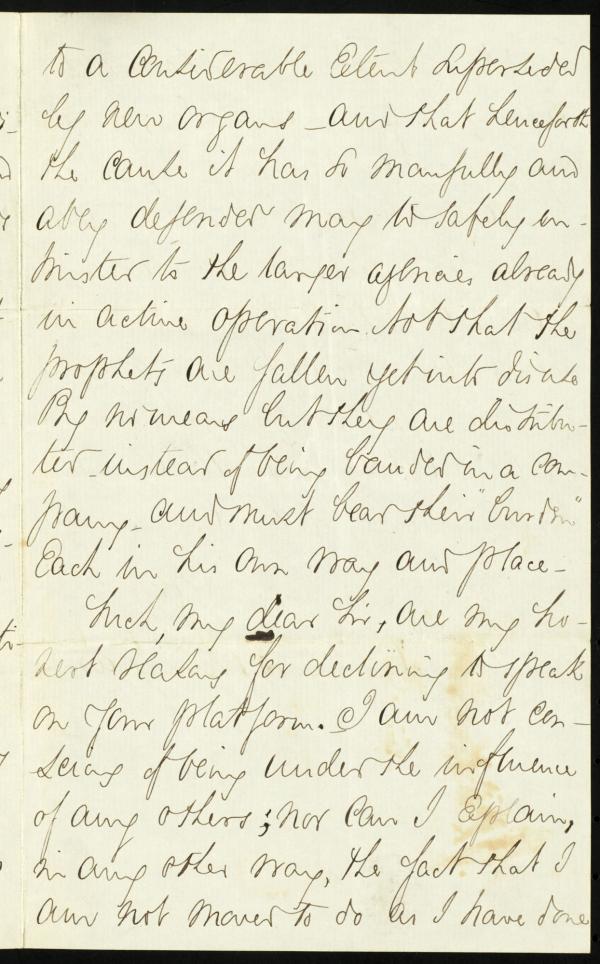 to a considerable extent superseded
by new organs - and that henceforth
the cause it has so manfully and
ably defended may be safely en-
trusted to the larger agencies already
in active operation. Not that the
prophets are fallen yet into disuse
By no means but they are distribu-
ted instead of being banded in a com-
pany - and must bear their "burden"
Each in his own way and place -
Such, my dear Sir, are my ho-
nest reasons for declining to speak
on your platform. I am not con-
scious of being under the influence
of any others; nor can I explain,
in any other way, the fact that I
am not moved to do as I have done